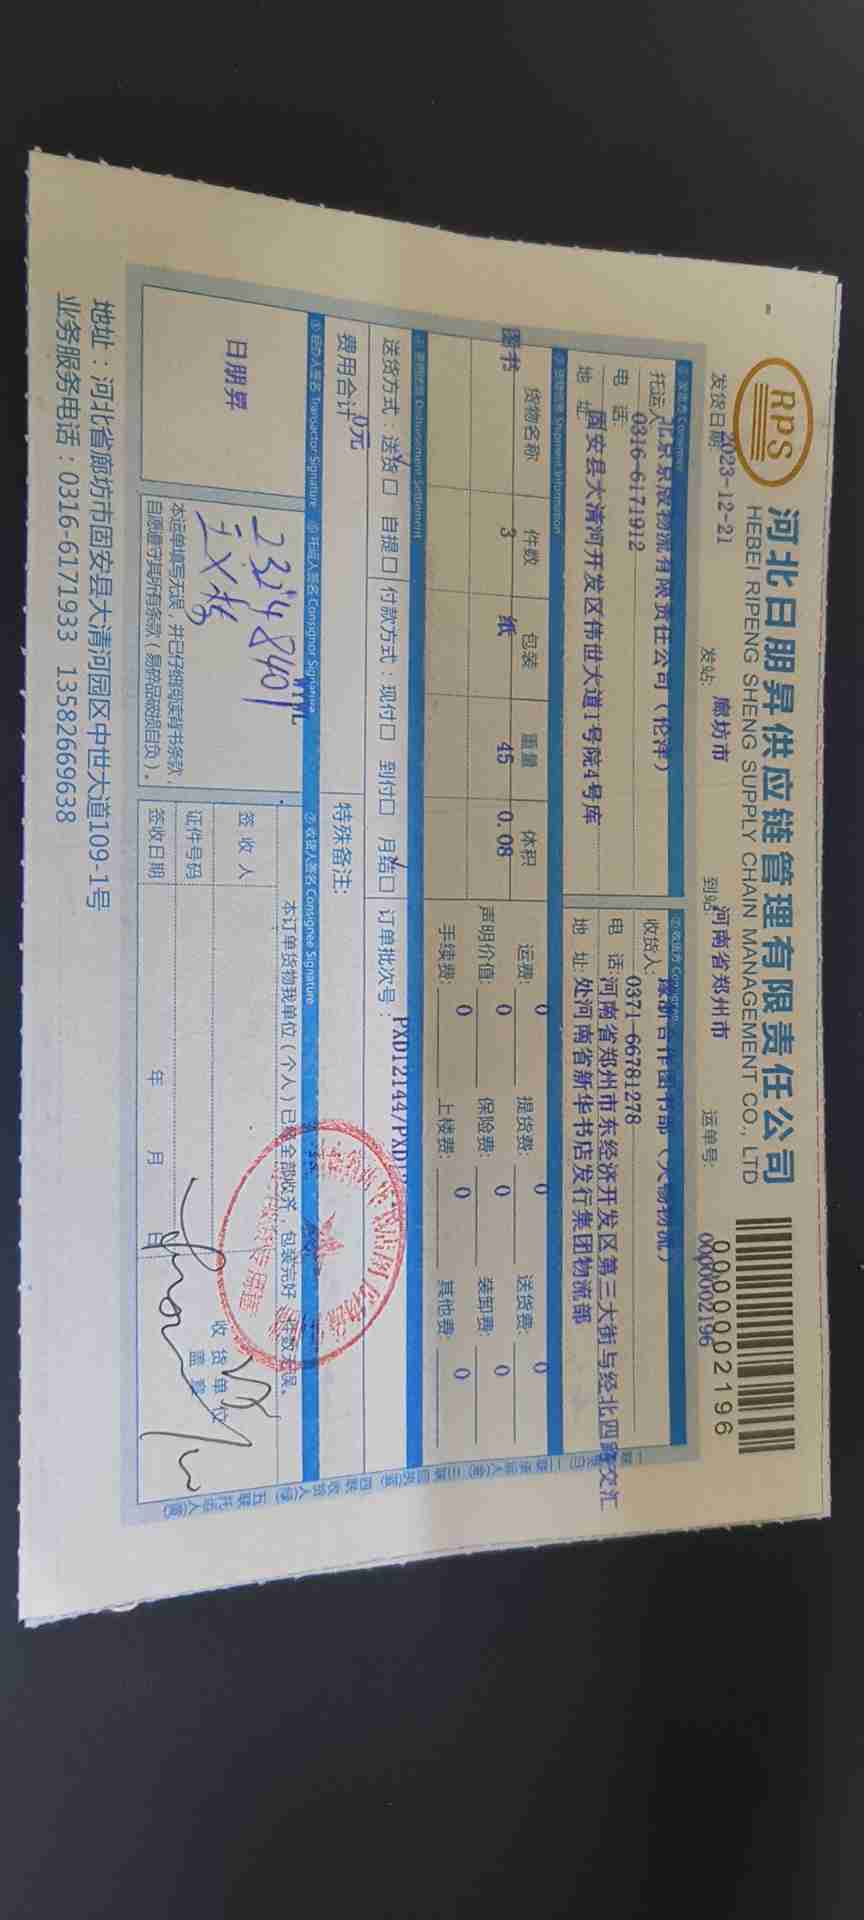 RPS
河北日朋昇供应链管理有限责任公司
HEBEI RIPENG SHENG SUPPLY CHAIN MANAGEMENT CO., LTD
0000002196
发货日期: 2023-12-21 发站: 廊坊市 到站: 河南省郑州市 运单号: 0000002196
托运人 物流有限责任公司
电 话: 0316-6171912
地 址 固安县大清河开发区伟世大道1号院4号库
② 收货方 Consignee
收货人: 合作图书部
0371-66781278
电 话: 河南省郑州市东经济开发区第三大街与经北四路交汇
地 址: 处河南省新华书店发行集团物流部
Shipment Information
货物名称 件数 包装 重量 体积
图书 3 纸 45 0.08
运费: 0 提货费: 0 送货费: 0
声明价值: 0 保险费: 0 装卸费: 0
手续费: 0 上楼费: 0 其他费: 0
Disbursement Settlement
送货方式: 送货 自提 付款方式: 现付 到付 月结 订单批次号: PXD12144/PXD1
费用合计 0元 特殊备注:
⑤ 经办人签名 Transactor Signature ⑥ 托运人签名 Consignor Signature ⑦ 收货人签名 Consignee Signature
日朋昇
本运单填写无误,并已仔细阅读背书条款,
自愿遵守其所有条款(易碎品破损自负)。
本订单货物我单位(个人)已 全部收齐,包装完好
签 收 人
证件号码
签收日期 年 月 日
收货单位
盖 章
地址:河北省廊坊市固安县大清河园区中世大道109-1号
业务服务电话:0316-6171933 13582669638